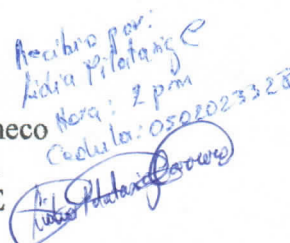 Recibio por:
Lidia Pilatasig C
Hora: 2 pm
neco
Cedula: 0502023328
E